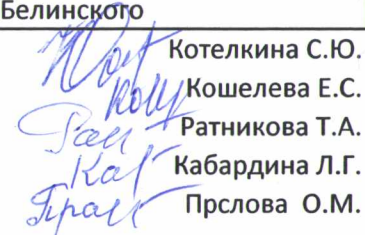 Белинского
Котелкина С.Ю.
Кошелева Е.С.
Ратникова Т.А.
Кабардина Л.Г.
Прслова О.М.